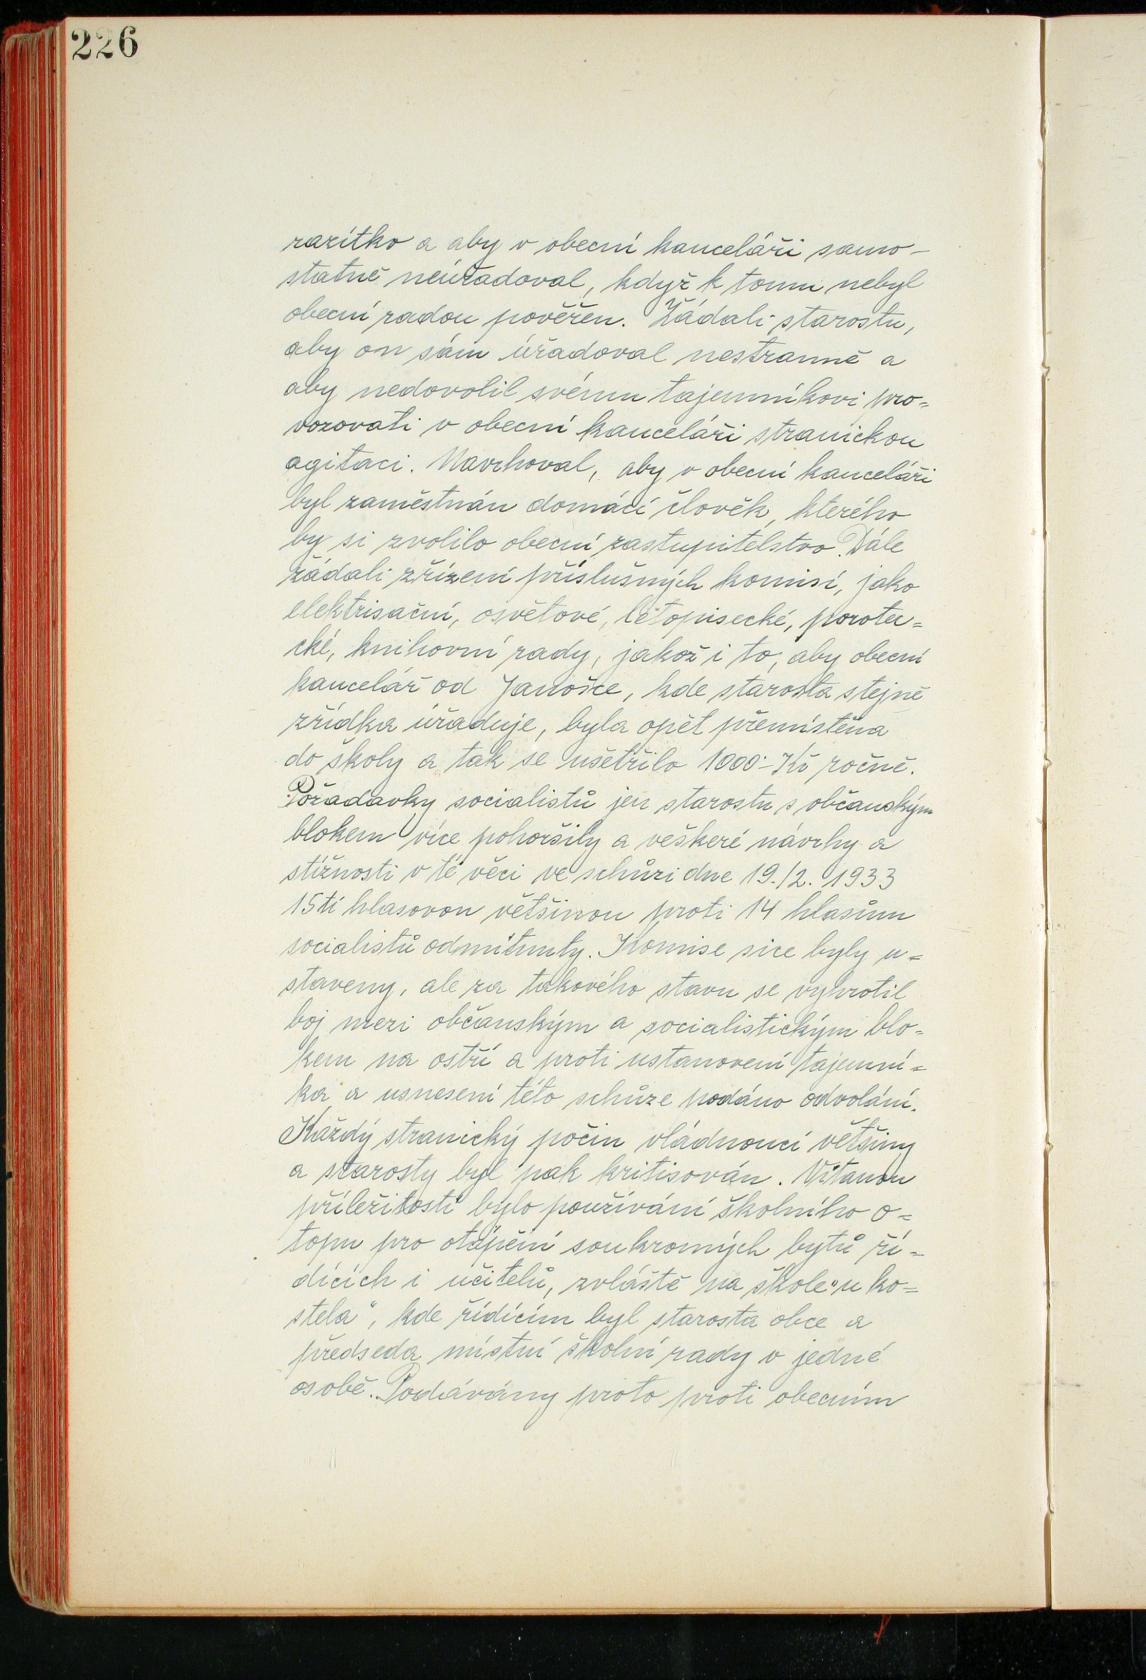 226
razítko a aby v obecní kanceláři samo-
statně neúřadoval, když k tomu nebyl
obecní radou pověřen. Žádali starostu,
aby on sám úřadoval nestranně a
aby nedovolil svému tajemníkovi pro=
vozovati v obecní kanceláři stranickou
agitaci. Navrhoval, aby v obecní kanceláři
byl zaměstnán domácí člověk, kterého
by si zvolilo obecní zastupitelstvo. Dále
žádali zřízení příslušných komisí, jako
elektrisační, osvětové, letopisecké, porotu=
cké, knihovní rady, jakož i to, aby obecní
kancelář od Janošce, kde starosta stejně
zřídka úřaduje, byla opět přemístěna
do školy a tak se ušetřilo 1000·- Kč ročně.
Požadavky socialistů jen starostu s občanským
blokem více pohoršily a veškeré návrhy a
stížnosti v té věci ve schůzi dne 19./2. 1933
15ti hlasovou většinou proti 14 hlasům
socialistů odmítnuty. Komise sice byly u=
staveny, ale za takového stavu se vyhrotil
boj mezi občanským a socialistickým blo=
kem na ostří a proti ustanovení tajemní=
ka a usnesení této schůze podáno odvolání.
Každý stranický počin vládnoucí většiny
a starosty byl pak kritisován. Vítanou
příležitostí bylo používání školního o=
topu pro otápění soukromých bytů ří=
dících i učitelů, zvláště na škole "u ko=
stela", kde řídícím byl starosta obce a
předseda místní školní rady v jedné
osobě. Podávány proto proti obecním